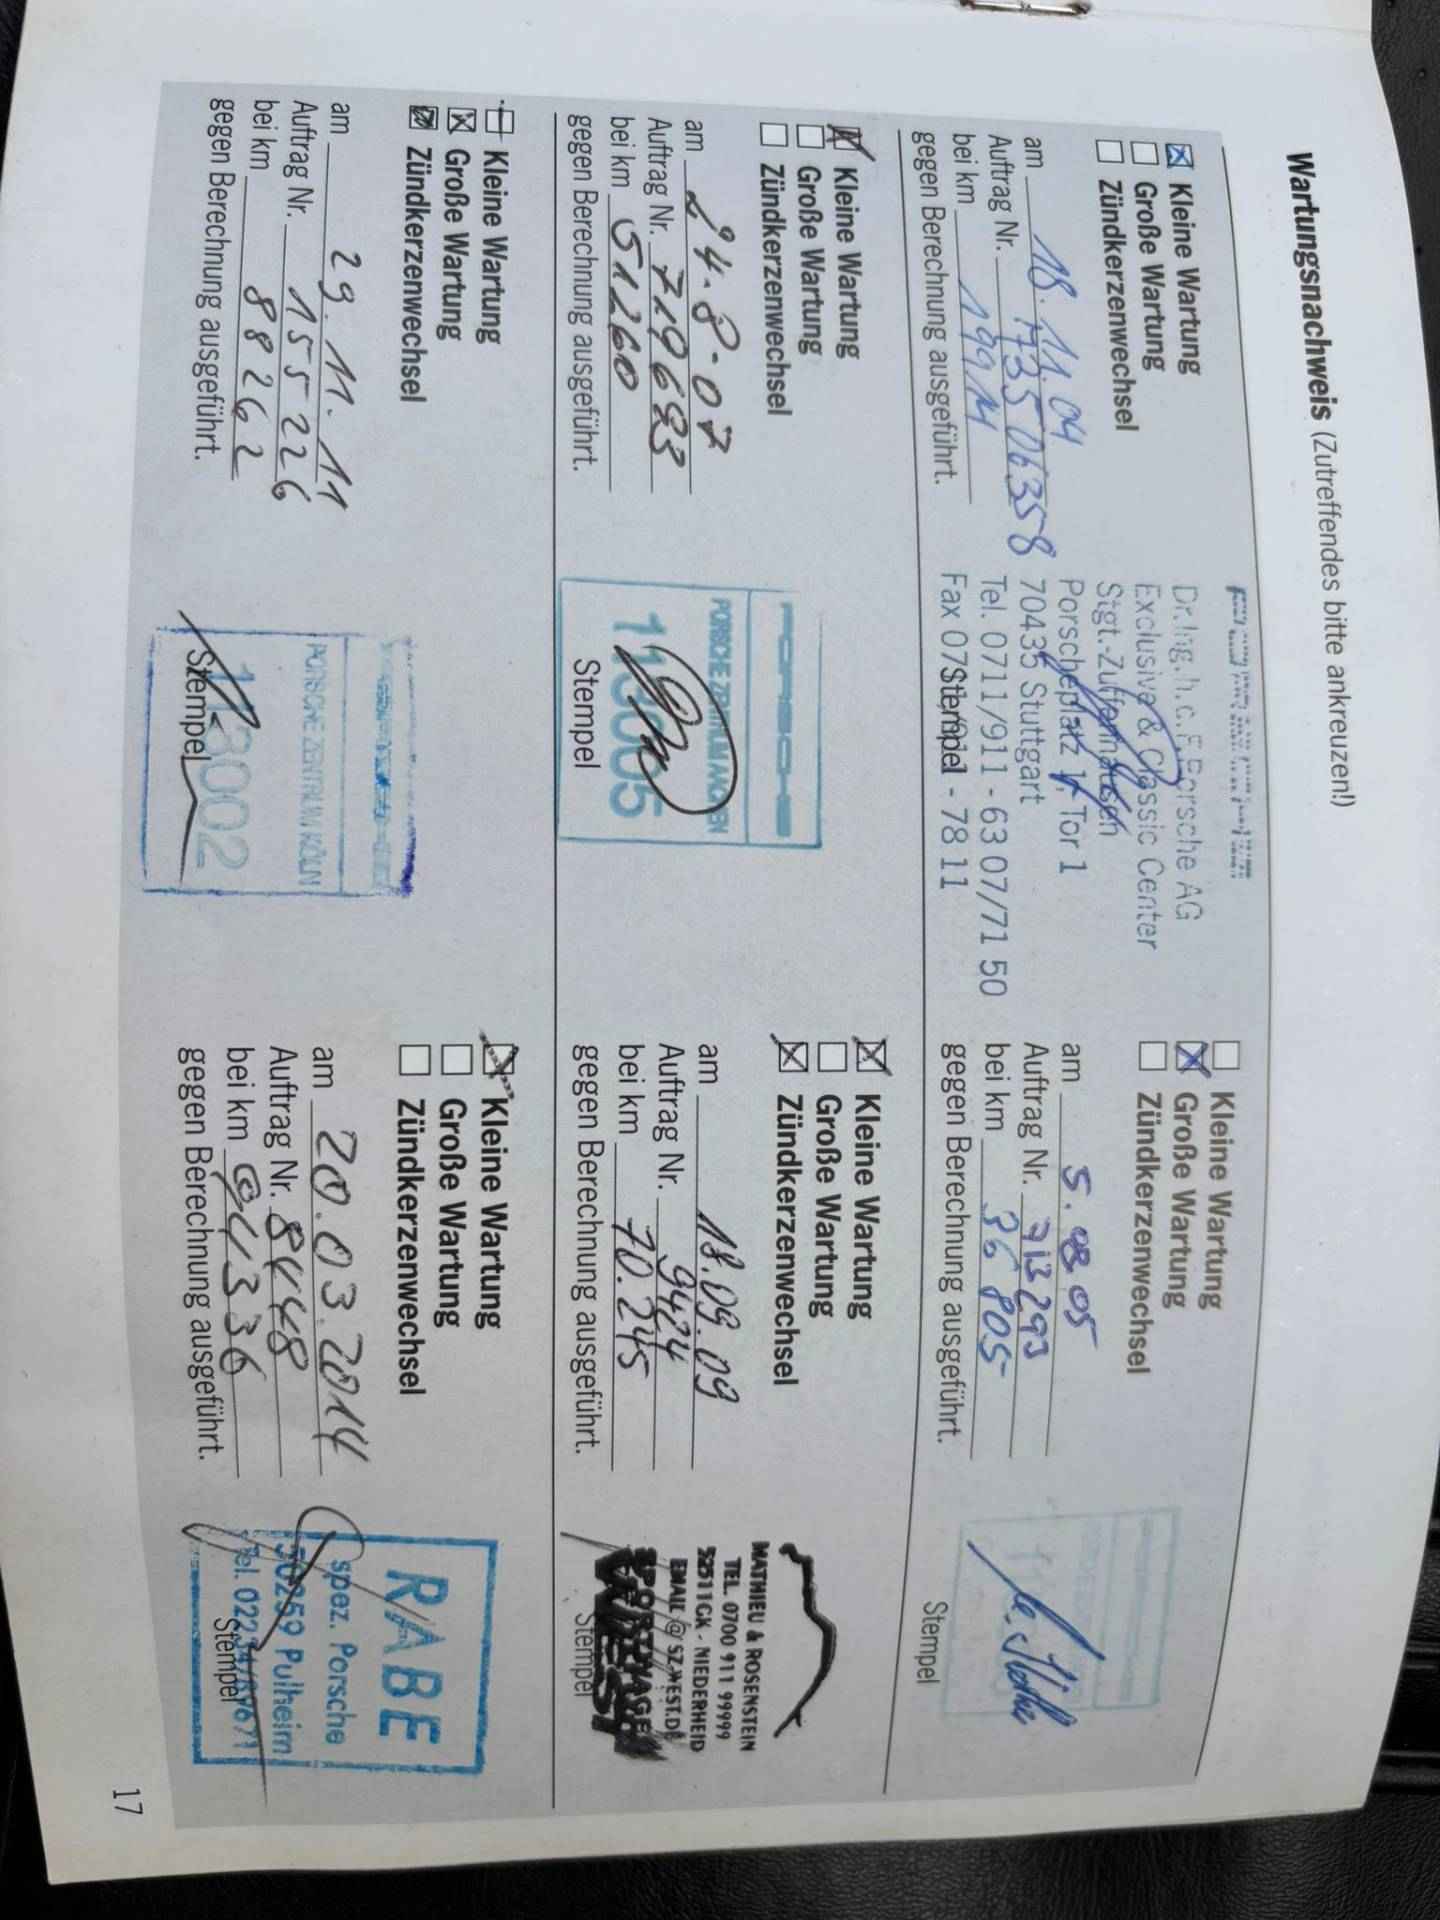 Wartungsnachweis (Zutreffendes bitte ankreuzen!)
Kleine Wartung
Große Wartung
Zündkerzenwechsel
am 18.11.04
Auftrag Nr. 73506358
bei km 19911
gegen Berechnung ausgeführt.
Dr.Ing.h.c.F.Porsche AG
Exclusive & Classic Center
Stgt.-Zuffenhausen
Porscheplatz 1, Tor 1
70435 Stuttgart
Tel. 0711/911-6307/7150
Fax 07 - 7811
Stempel
Kleine Wartung
Große Wartung
Zündkerzenwechsel
am 5.08.05
Auftrag Nr. 713293
bei km 36 805
gegen Berechnung ausgeführt.
Stempel
Kleine Wartung
Große Wartung
Zündkerzenwechsel
am 24.8.07
Auftrag Nr. 719693
bei km 51260
gegen Berechnung ausgeführt.
PORSCHE
PORSCHE ZENTRUM AACHEN
Stempel
Kleine Wartung
Große Wartung
Zündkerzenwechsel
am 18.09.09
Auftrag Nr. 9424
bei km 70.245
gegen Berechnung ausgeführt.
MATHIEU & ROSENSTEIN
TEL. 0700 911 99999
52511 GK - NIEDERHEID
EMAIL @SZ-WEST.DE
SPORTWAGEN
WEST
Stempel
Kleine Wartung
Große Wartung
Zündkerzenwechsel
am 29.11.11
Auftrag Nr. 155226
bei km 88262
gegen Berechnung ausgeführt.
PORSCHE ZENTRUM KÖLN
113002
Stempel
Kleine Wartung
Große Wartung
Zündkerzenwechsel
am 20.03.2014
Auftrag Nr. 8448
bei km 94336
gegen Berechnung ausgeführt.
RABE
spez. Porsche
50259 Pulheim
Stempel
17